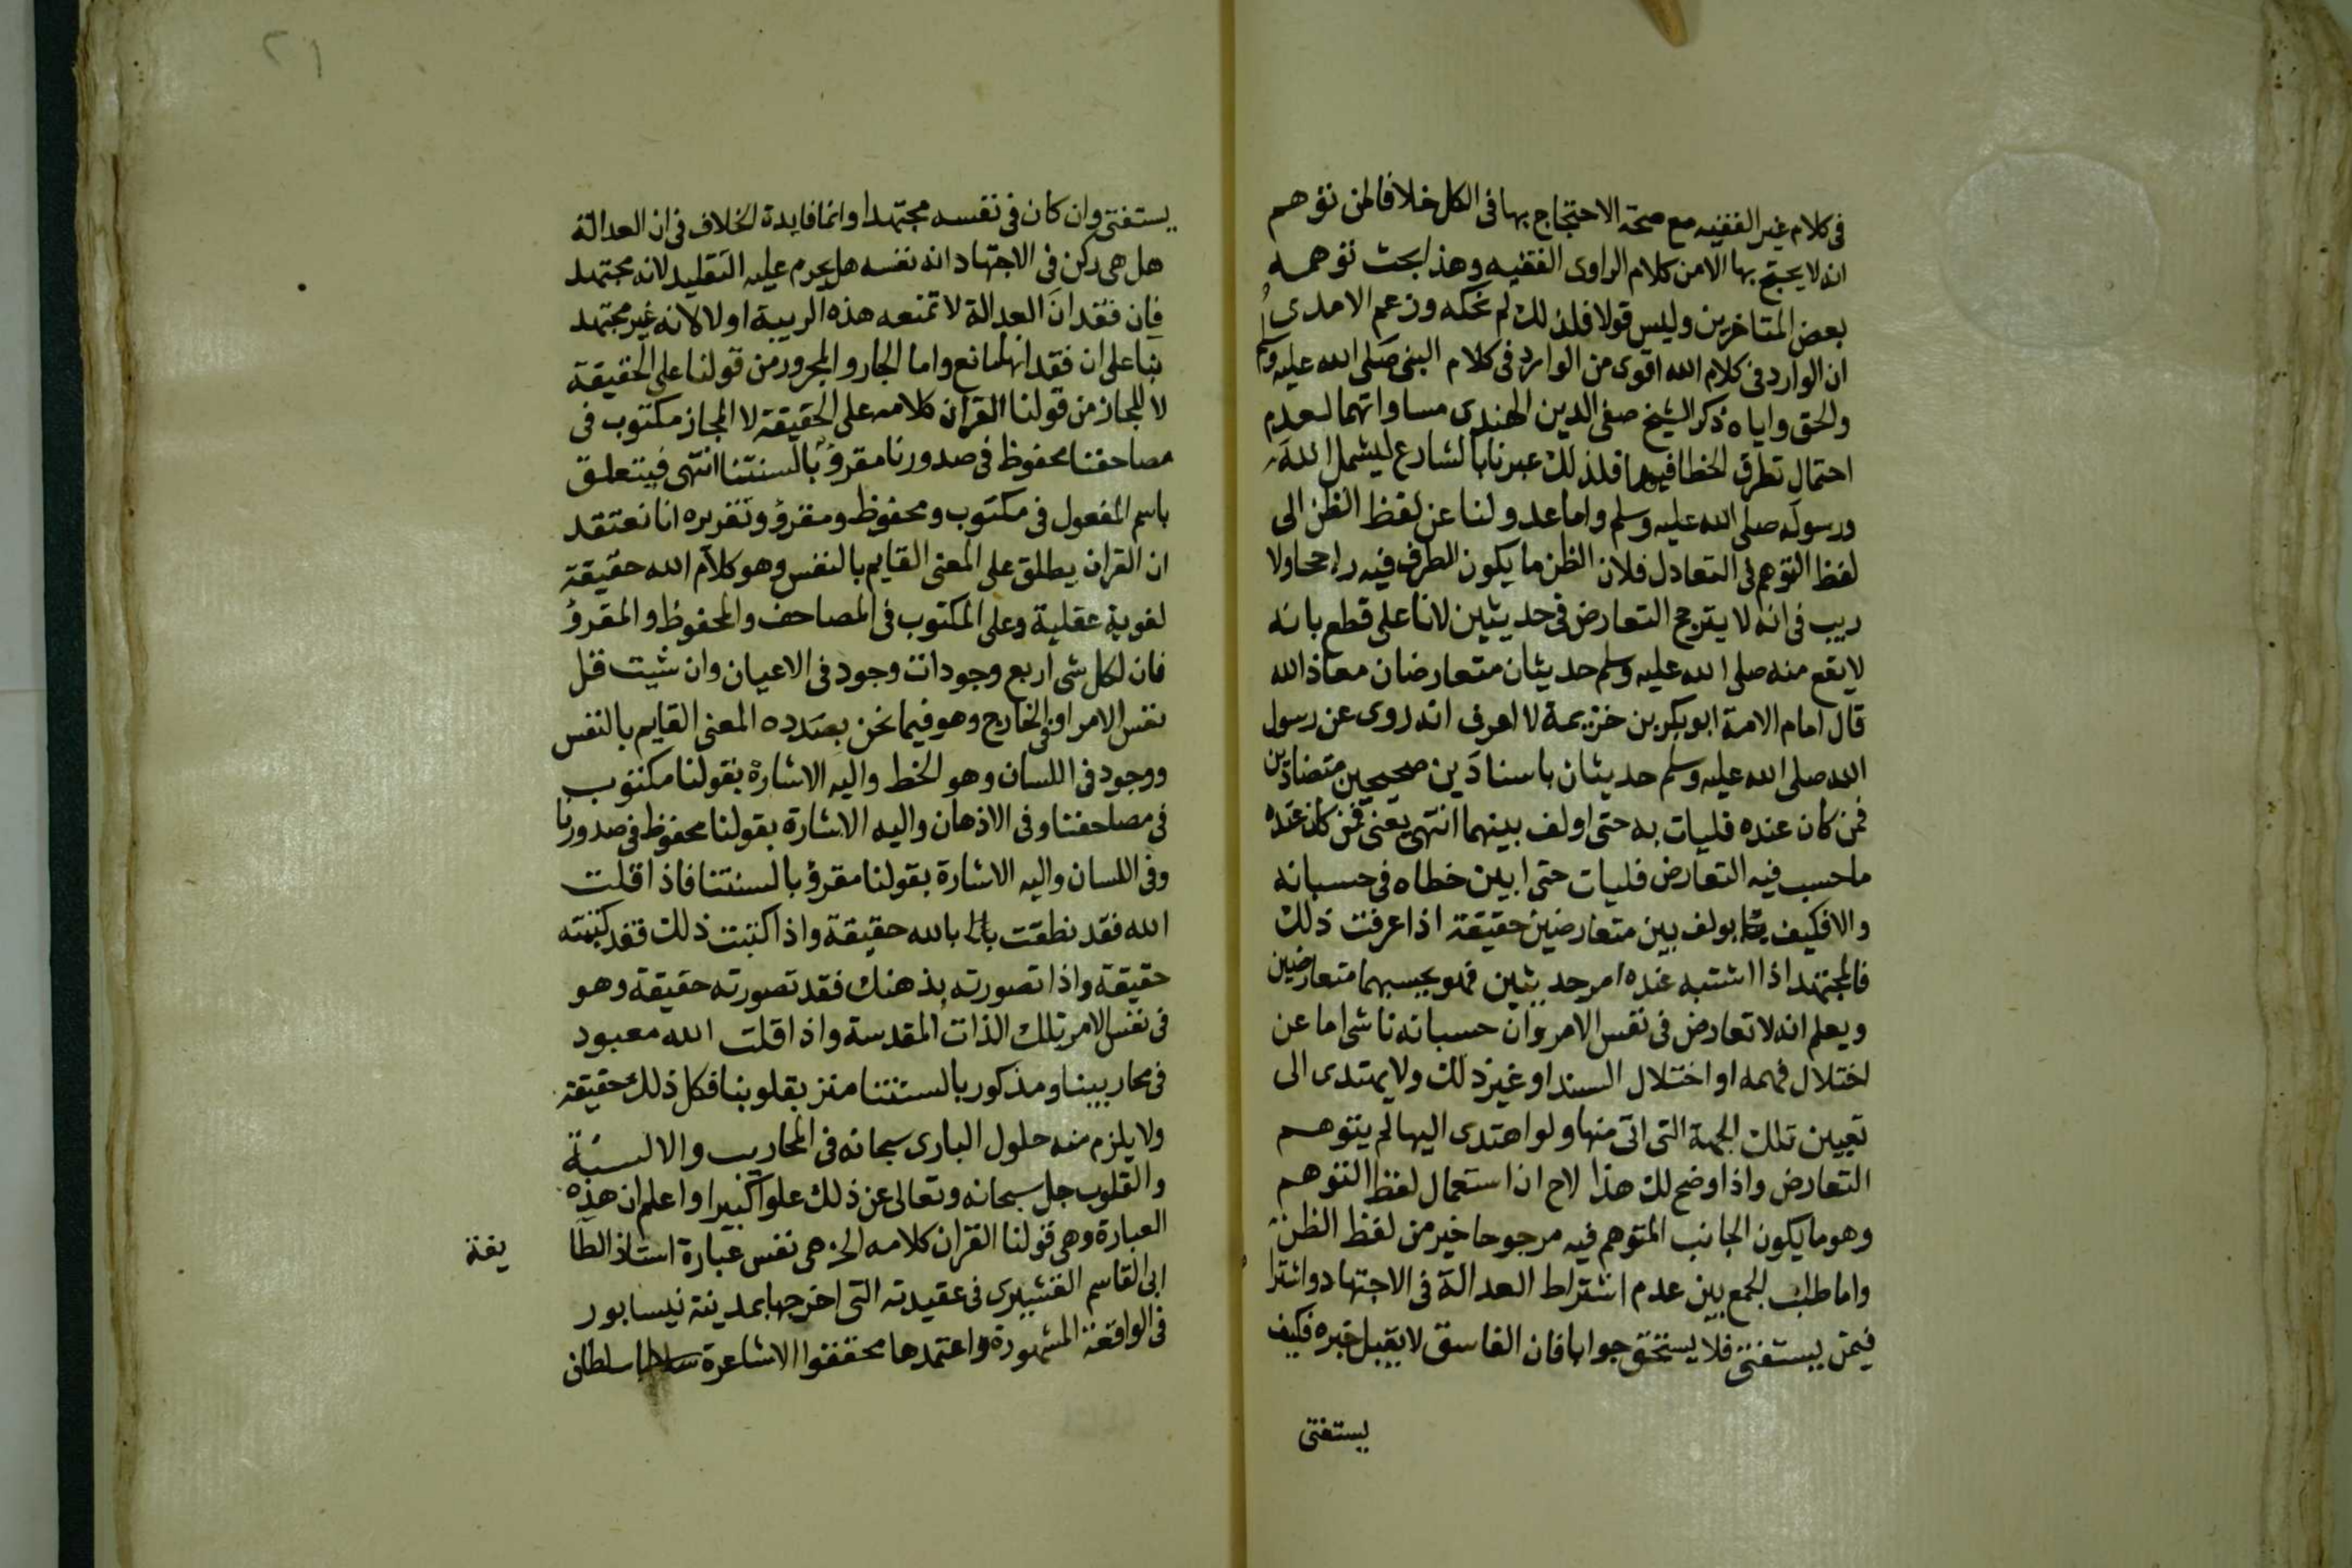 فى كلام غير الفقيه مع صحة الاحتجاج بها فى الكل خلافا لمن توهم
انه لا يحتج بها الا من كلام الراوى الفقيه وهذا بحث توهمه
بعض المتاخرين وليس قولا فلذلك لم نحكه وزعم الامدى
ان الوارد فى كلام الله اقوى من الوارد فى كلام النبى صلى الله عليه وسلم
والحق واياه ذكر الشيخ صفى الدين الهندى مساواتهما لعدم
احتمال تطرق الخطا فيهما فلذلك عبرنا بالشارع ليشمل الله
ورسوله صلى الله عليه وسلم واما عدولنا عن لفظ الظن الى
لفظ التوهم فى التعادل فلان الظن ما يكون الطرف فيه راجحا ولا
ريب فى انه لا يترجح التعارض فى حديثين لانا على قطع بانه
لا يقع منه صلى الله عليه وسلم حديثان متعارضان معاذ الله
قال امام الامة ابو بكر بن خزيمة لا اعرف انه روى عن رسول
الله صلى الله عليه وسلم حديثان باسنادين صحيحين متضادين
فمن كان عنده فليات به حتى اولف بينهما انتهى يعنى فمن كان عنده
ما حسب فيه التعارض فليات حتى ابين خطاه فى حسبانه
والا فكيف يولف بين متعارضين حقيقة اذا عرفت ذلك
فالمجتهد اذا اشتبه عنده امر حديثين فهو يحسبهما متعارضين
ويعلم انه لا تعارض فى نفس الامر وان حسبانه ناشى اما عن
اختلال فهمه او اختلال السند او غير ذلك ولا يهتدى الى
تعيين تلك الجهة التى اتى منها ولو اهتدى اليها لم يتوهم
التعارض واذا وضح لك هذا لاح ان استعمال لفظ التوهم
وهو ما يكون الجانب المتوهم فيه مرجوحا خير من لفظ الظن
واما طلب الجمع بين عدم اشتراط العدالة فى الاجتهاد واشترا
فيمن يستفتى فلا يستحق جوابا فان الفاسق لا يقبل خبره فكيف
يستفتى
يستفتى وان كان فى نفسه مجتهدا وانما فايدة الخلاف فى ان العدالة
هل هى ركن فى الاجتهاد انه نفسه هل يحرم عليه التقليد لانه مجتهد
فان فقدان العدالة لا تمنعه هذه الريبة او لا لانه غير مجتهد
بنا على ان فقدانها مانع واما الجار والمجرور من قولنا على الحقيقة
لا المجاز من قولنا القران كلامه على الحقيقة لا المجاز مكتوب فى
مصاحفنا محفوظ فى صدورنا مقرؤ بالسنتنا انتهى فيتعلق
باسم المفعول فى مكتوب ومحفوظ ومقرؤ وتقريره انا نعتقد
ان القران يطلق على المعنى القايم بالنفس وهو كلام الله حقيقة
لغوية عقلية وعلى المكتوب فى المصاحف والمحفوظ والمقرؤ
فان لكل شى اربع وجودات وجود فى الاعيان وان شيت قل
نفس الامر او فى الخارج وهو فيما نحن بصدده المعنى القايم بالنفس
ووجود فى اللسان وهو الخط واليه الاشارة بقولنا مكتوب
فى مصاحفنا وفى الاذهان واليه الاشارة بقولنا محفوظ فى صدورنا
وفى اللسان واليه الاشارة بقولنا مقرؤ بالسنتنا فاذا قلت
الله فقد نطقت بالله حقيقة واذا كتبت ذلك فقد كتبته
حقيقة واذا تصورته بذهنك فقد تصورته حقيقة وهو
فى نفس الامر تلك الذات المقدسة واذا قلت الله معبود
فى محاريبنا ومذكور بالسنتنا منزه بقلوبنا فكل ذلك حقيقة
ولا يلزم منه حلول البارى سبحانه فى المحاريب والالسنة
والقلوب جل سبحانه وتعالى عن ذلك علوا كبيرا واعلم ان هذه
العبارة وهى قولنا القران كلامه الخ هى نفس عبارة استاذ الطا يفة
ابى القاسم القشيرى فى عقيدته التى اخرجها بمدينة نيسابور
فى الواقعة المشهورة واعتمدها محققوا الاشاعرة سلطان